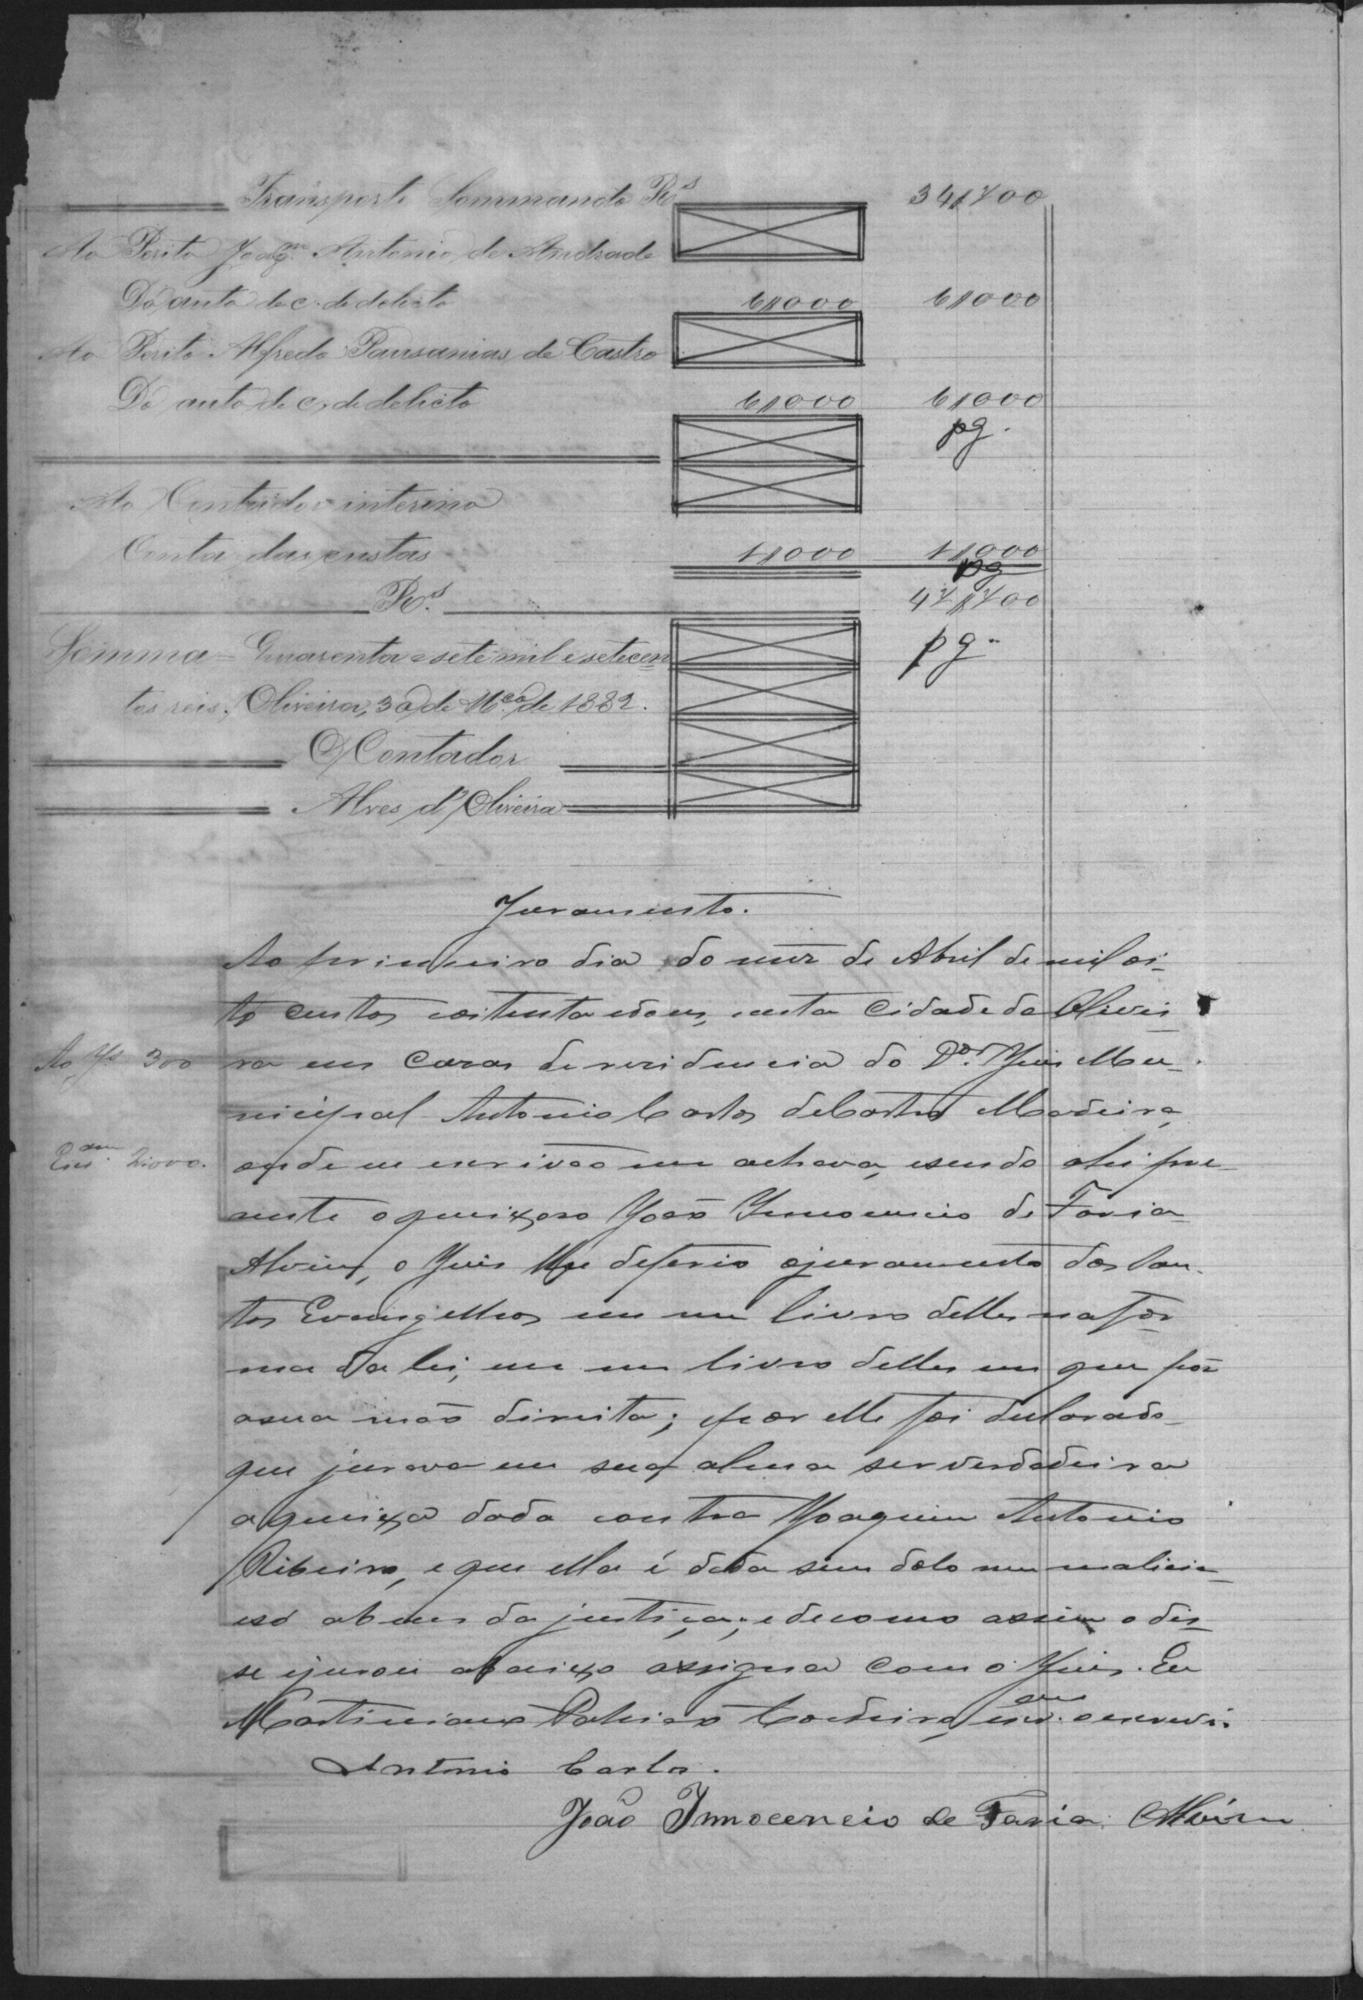 Transporte Sommando Rs 34$700
Ao Perito Joaqm Antonio de Andrade
Do auto de c. de delicto 6$000 6$000
Ao Perito Alfredo Pausanias de Castro
Do auto de c. de delicto 6$000 6$000
pg.
Ao Contador interino
Conta das custas 1$000 1$000
pg
Rs. 47$700
Somma = Quarenta e sete mil e setecen
tos reis. Oliveira, 30 de Mço de 1882.
pg.
O Contador
Alves d'Oliveira
Juramento.
Ao primeiro dia do mez de Abril de mil oi-
to centos oitenta e dous, nesta Cidade da Olivei
Ao Js 300
ra em casas de residencia do Dr. Juis Mu-
nicipal Antonio Carlos de Castro Madeira,
Escam. 2000.
onde eu escrivão me achava, e sendo ahi pre-
sente o queixoso João Innocencio de Faria
Alvim, o Juis lhe deferio o juramento dos San-
tos Evangelhos em um livro delles na for
ma da lei, em um livro delles em que pôs
a sua mão direita; e por elle foi declarado
que jurava em sua alma ser verdadeira
a queixa dada contra Joaquim Antonio
Ribeiro, e que ella é dada sem dolo nem malicia
e só abem da justiça; e de como assim o dis
se e jurou abaixo assigna com o Juis. Eu
Martiniano Cordeiro, escam. o escrevi.
Antonio Carlos.
João Innocencio de Faria Alvim